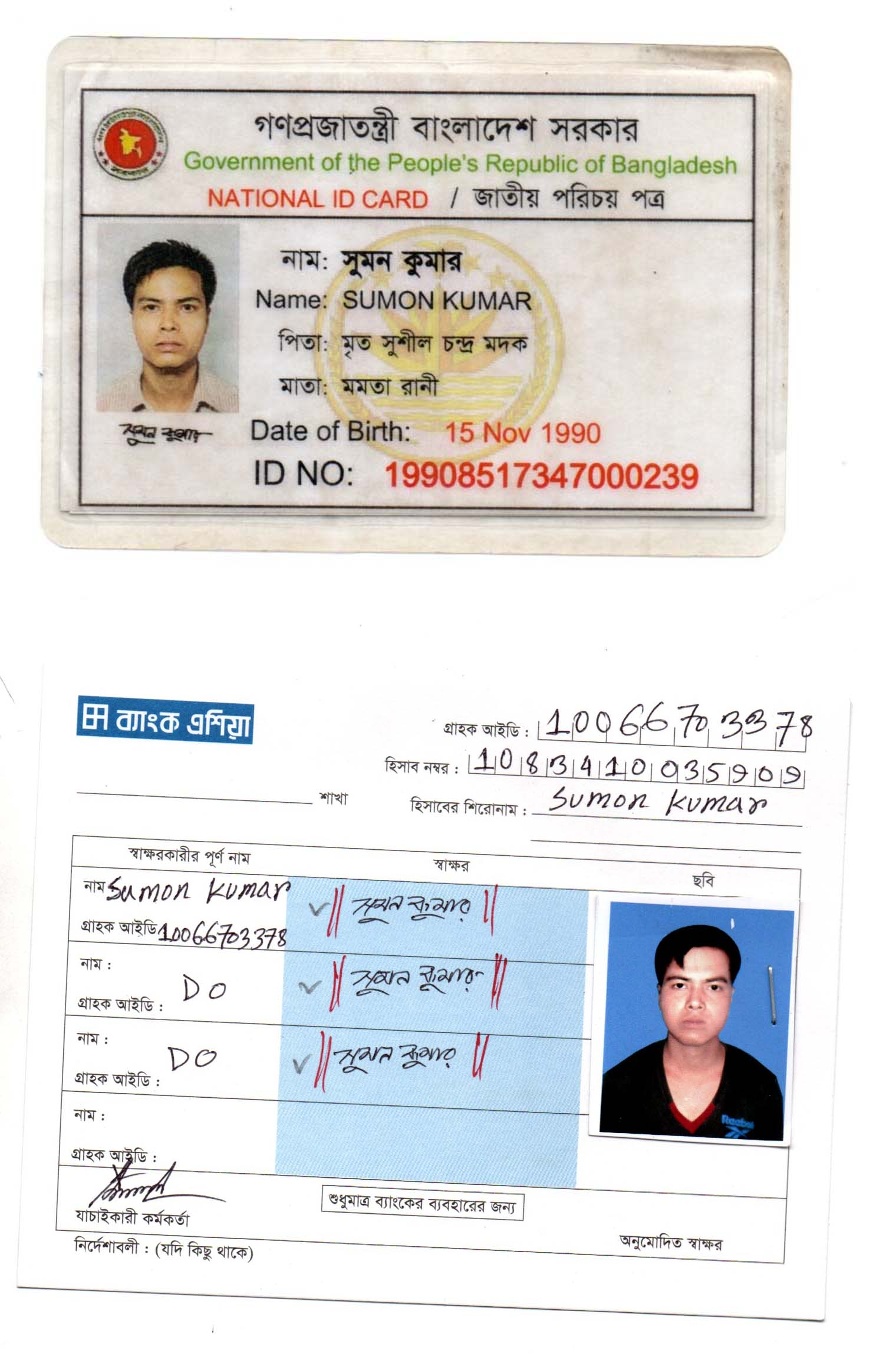 গণপ্রজাতন্ত্রী বাংলাদেশ সরকার
Government of the People's Republic of Bangladesh
NATIONAL ID CARD / জাতীয় পরিচয় পত্র
নাম: সুমন কুমার
Name: SUMON KUMAR
পিতা: মৃত সুশীল চন্দ্র মদক
মাতা: মমতা রানী
সুমন কুমার
Date of Birth: 15 Nov 1990
ID NO: 19908517347000239
ব্যাংক এশিয়া
গ্রাহক আইডি : 10066703378
হিসাব নম্বর : 1083410035909
শাখা
হিসাবের শিরোনাম : Sumon Kumar
স্বাক্ষরকারীর পূর্ণ নাম স্বাক্ষর ছবি
নাম Sumon Kumar সুমন কুমার
গ্রাহক আইডি 10066703378
নাম : DO সুমন কুমার
গ্রাহক আইডি :
নাম : DO সুমন কুমার
গ্রাহক আইডি :
নাম :
গ্রাহক আইডি :
Reebok
যাচাইকারী কর্মকর্তা
শুধুমাত্র ব্যাংকের ব্যবহারের জন্য
অনুমোদিত স্বাক্ষর
নির্দেশাবলী : (যদি কিছু থাকে)